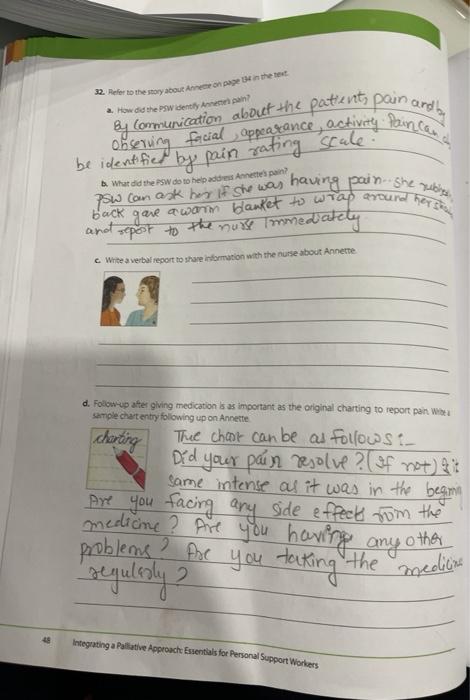 32. Refer to the story about Annette on page 134 in the text.
a. How did the PSW identify Annette's pain?
By Communication about the patients pain and by
observing facial, appearance, activity. Pain can
be identified by pain rating scale.
b. What did the PSW do to help address Annette's pain?
PSW can ask her if she was having pain.. she rubbed
back gave a warm blanket to wrap around her
and report to the nurse Immediately.
c. Write a verbal report to share information with the nurse about Annette.
d. Follow-up after giving medication is as important as the original charting to report pain. Write a
sample chart entry following up on Annette.
charting
The chart can be as follows :-
Did your pain resolve ? (If not) is it
same intense as it was in the
Are you facing any side effects from the
medicine ? Are you having any other
problems ? Are you taking the medicine
regularly ?
48 Integrating a Palliative Approach: Essentials for Personal Support Workers